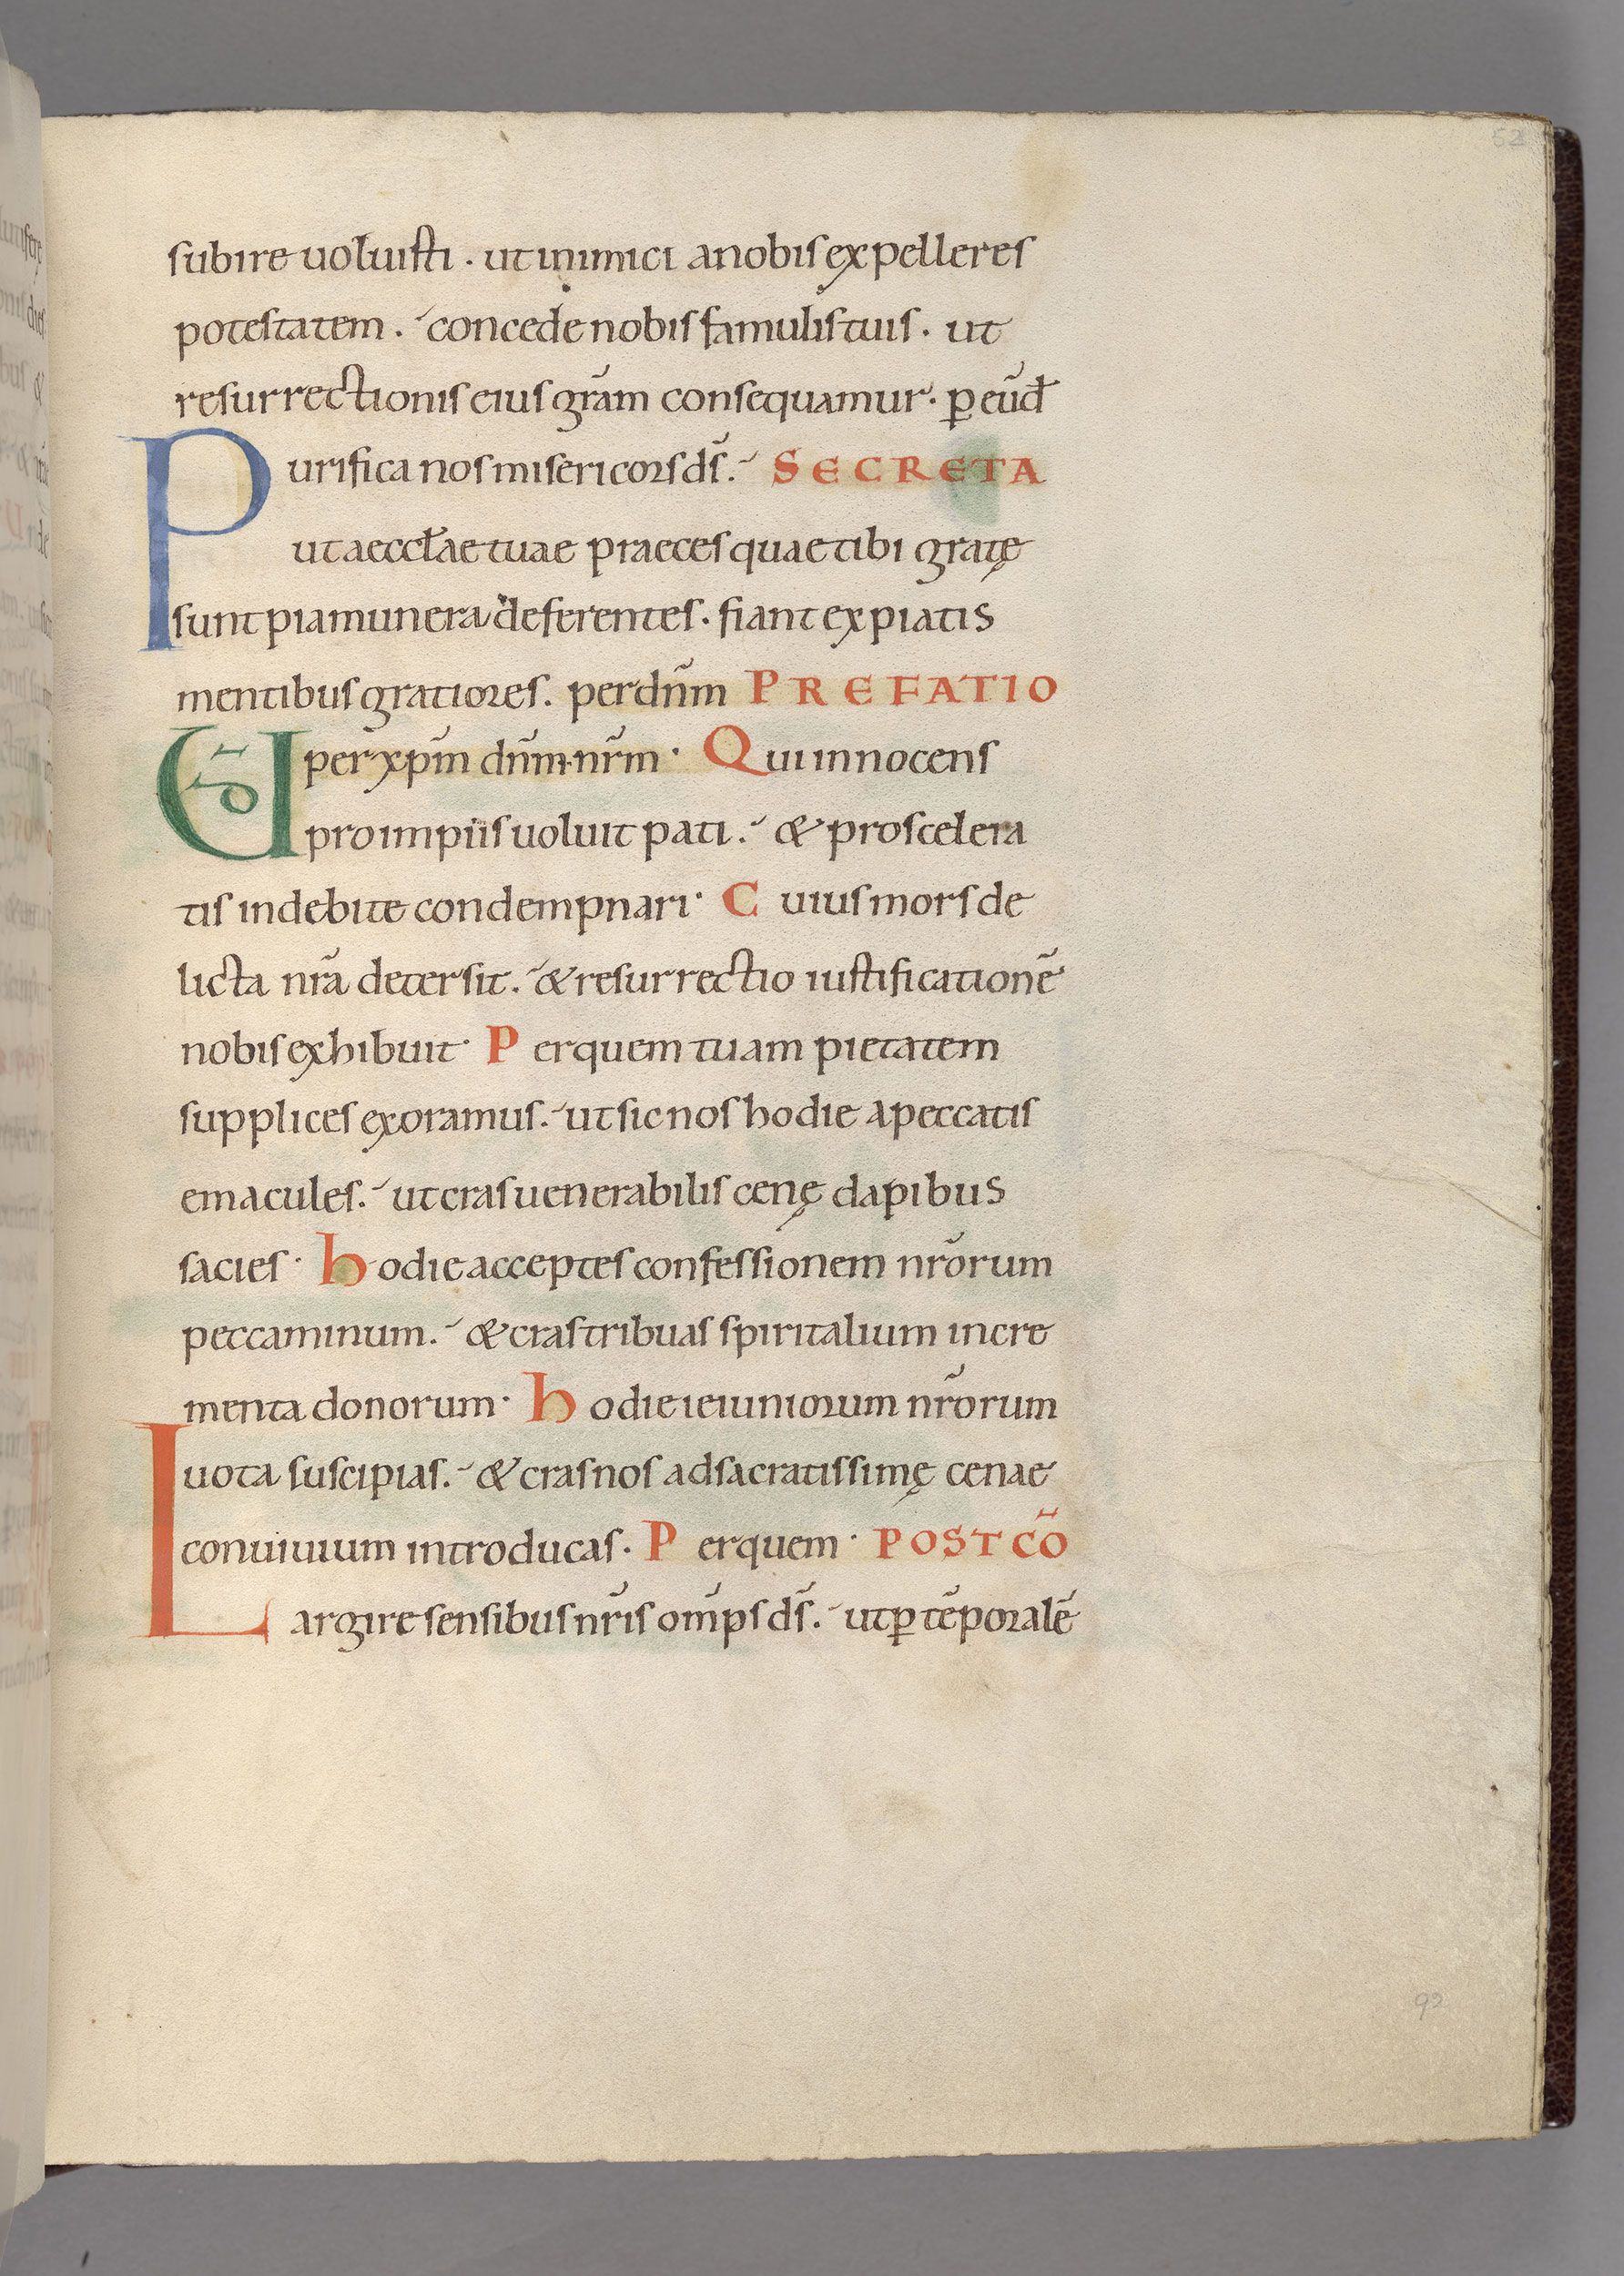 52
subire uoluisti . ut inimici a nobis expelleres
potestatem . concede nobis famulis tuis . ut
resurrectionis eius grām consequamur . ꝑ eūđ
Purifica nos misericors ds̄ . SECRETA
ut aeccłae tuae praeces quae tibi gratę
sunt pia munera deferentes . fiant expiatis
mentibus gratiores . per dn̄m PREFATIO
UD per xp̄m dn̄m nr̄m . Qui innocens
pro impiis uoluit pati . & pro scelera
tis indebite condempnari . Cuius mors de
licta nr̄a detersit . & resurrectio iustificationē
nobis exhibuit . Per quem tuam pietatem
supplices exoramus . ut sic nos hodie a peccatis
emacules . ut cras uenerabilis cenę dapibus
sacies . hodie acceptes confessionem nr̄orum
peccaminum . & cras tribuas spiritalium incre
menta donorum . hodie ieiuniorum nr̄orum
uota suscipias . & cras nos ad sacratissimę cenae
conuiuium introducas . Per quem . POST CŌ
Largire sensibus nr̄is om̄ps ds̄ . ut ꝑ tēporalē